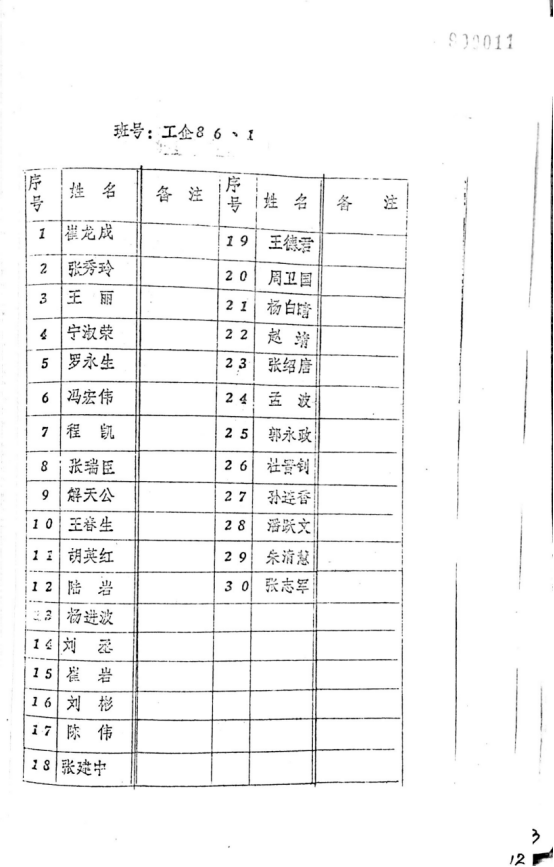 班号：工企86、1
序号 姓名 备注 序号 姓名 备注
1 崔龙成 19 王德君
2 张秀玲 20 周卫国
3 王丽 21 杨白
4 宁淑荣 22 赵靖
5 罗永生 23 张绍唐
6 冯宏伟 24 孟波
7 程凯 25 郭永政
8 张瑞臣 26 杜晋钊
9 解天公 27 孙连香
10 王春生 28 潘跃文
11 胡英红 29 朱清慧
12 陆岩 30 张志军
13 杨进波
14 刘丞
15 崔岩
16 刘彬
17 陈伟
18 张建中
3
12